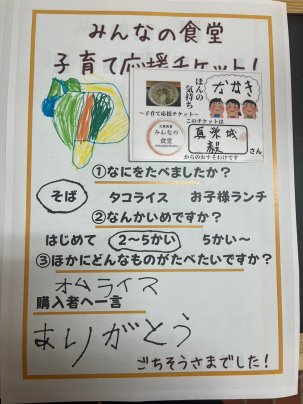 みんなの食堂
子育て応援チケット！
ほんの気持ち
ななき
～子育て応援チケット～
みんなの食堂
このチケットは
真栄城 毅 さん
からのおすそわけです
①なにをたべましたか？
そば タコライス お子様ランチ
②なんかいめですか？
はじめて 2～5かい 5かい～
③ほかにどんなものがたべたいですか？
オムライス
購入者へ一言
ありがとう
ごちそうさまでした！